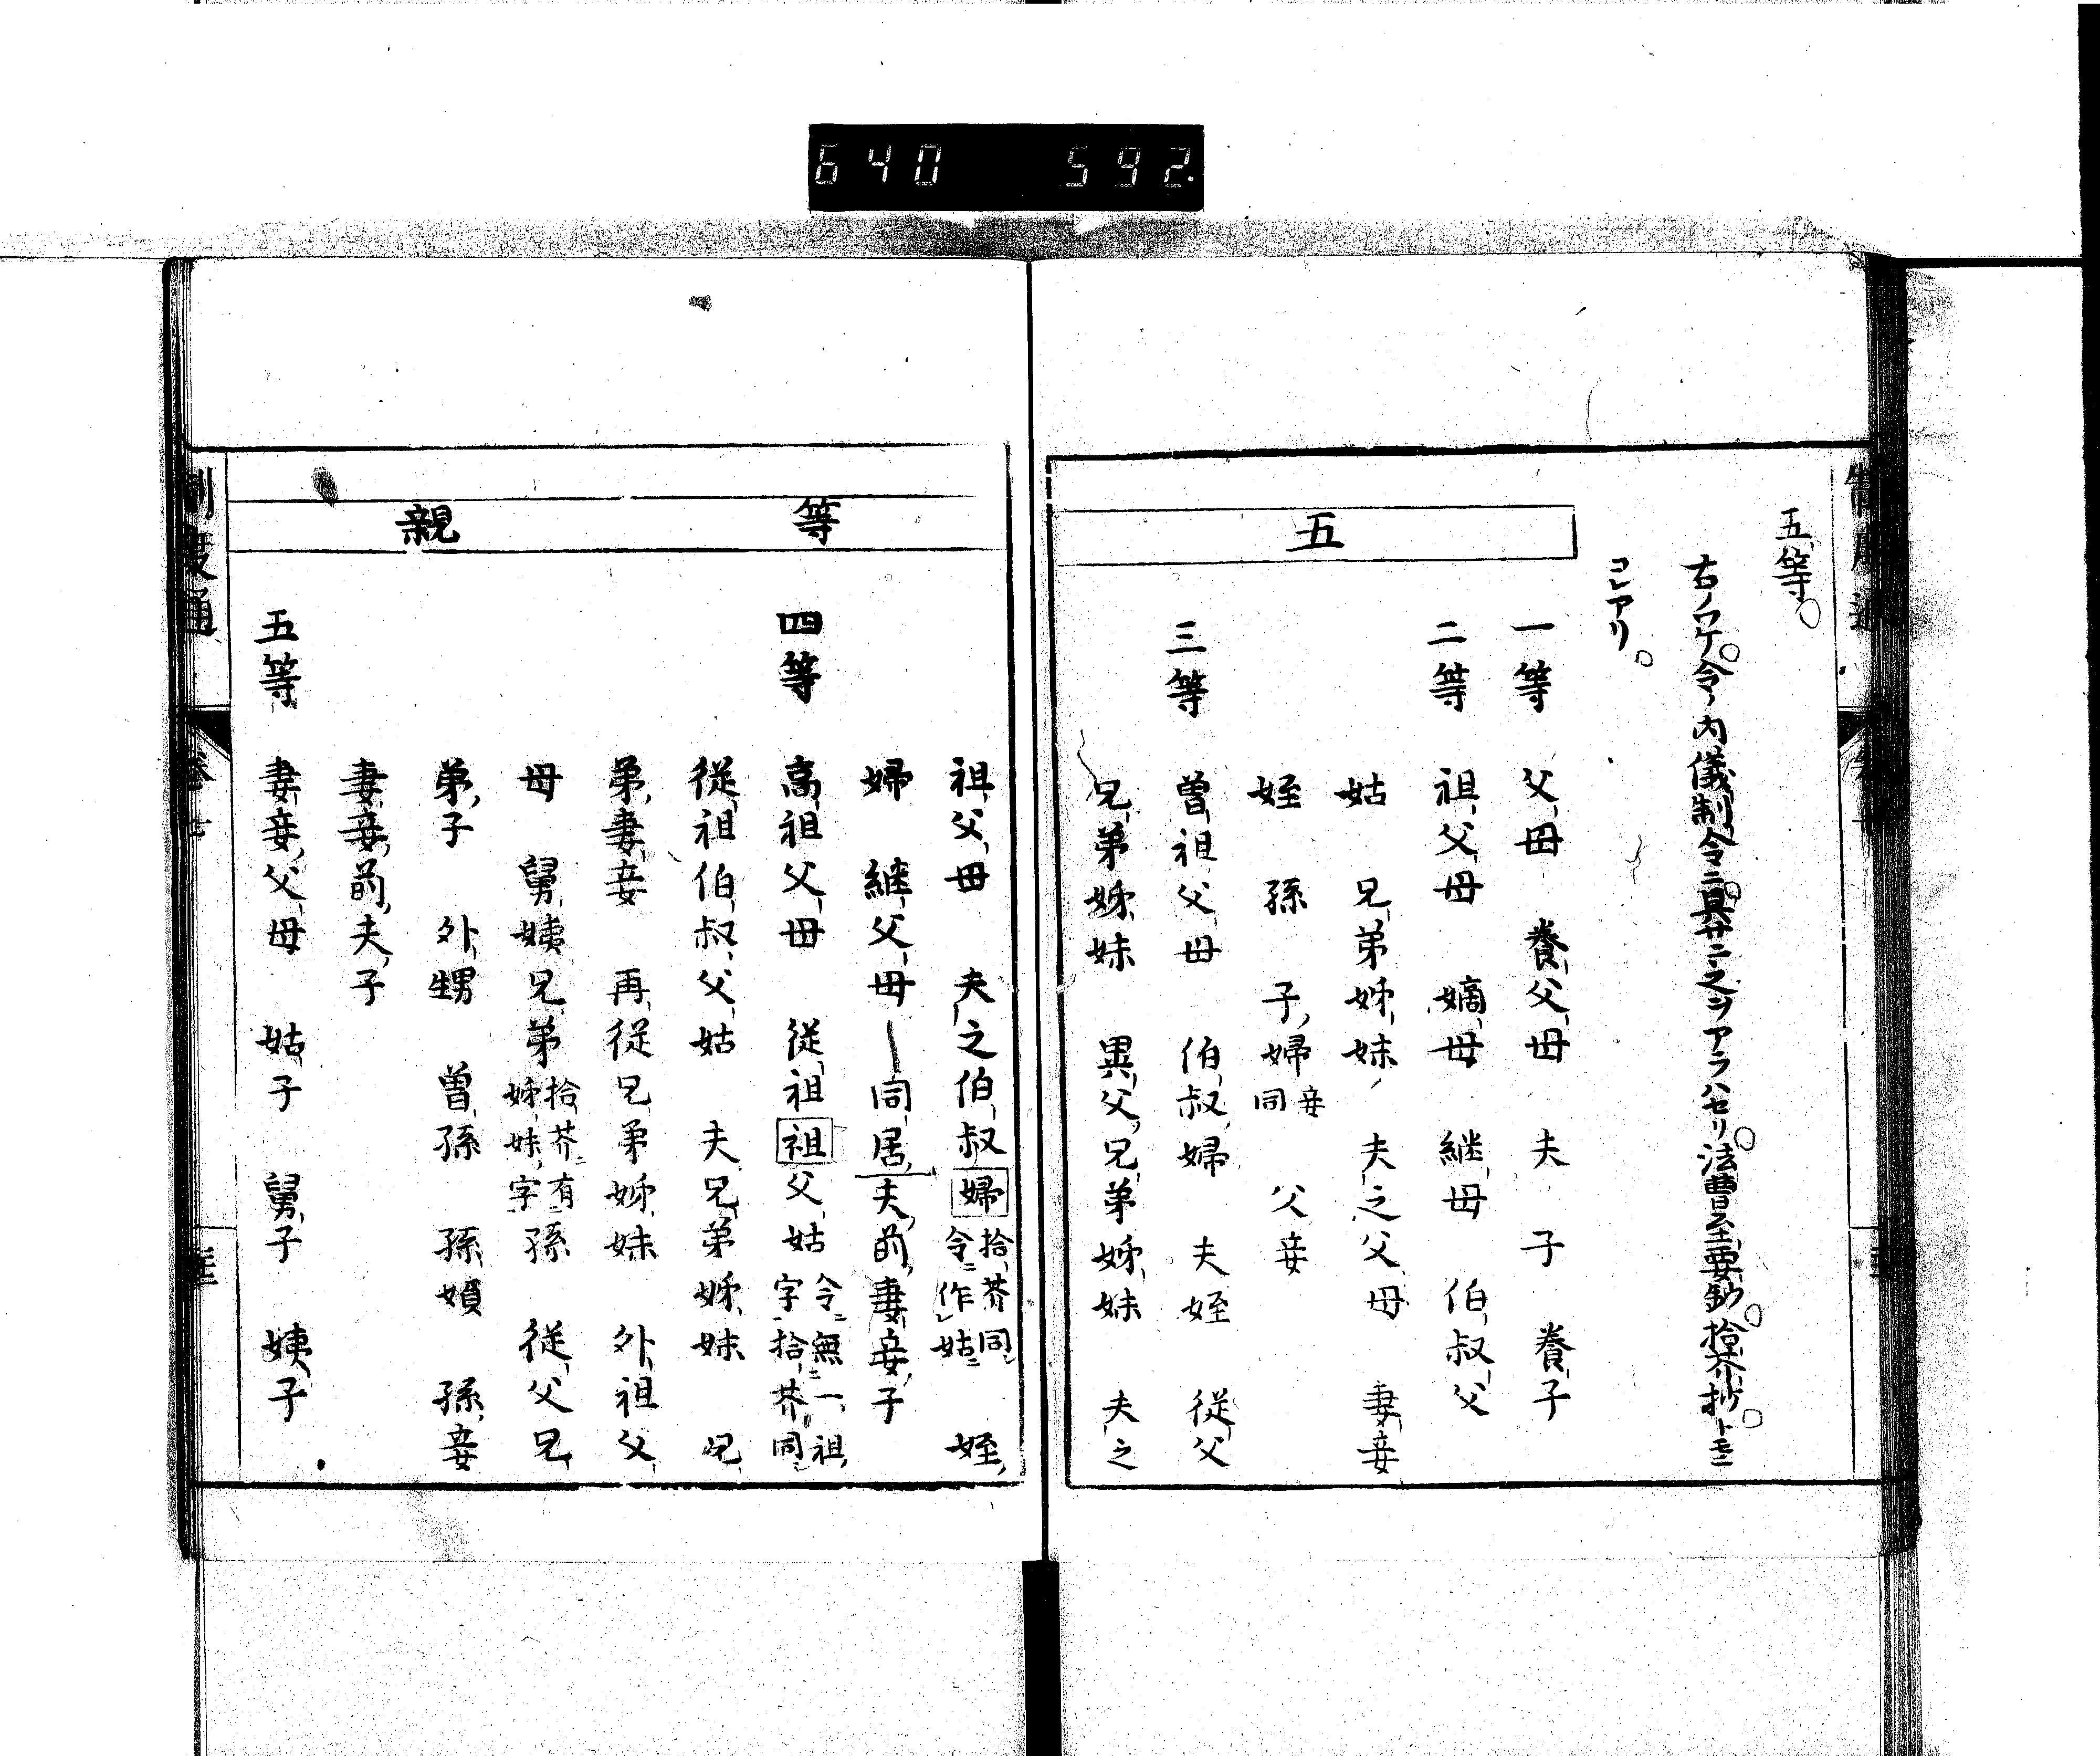 640 592.
五等。
右ノワケ。令ノ内儀制令ニ。具サニ之ヲアラハセリ。法曹至要鈔。拾芥抄。トモニ
コレアリ。
五
一等 父母 養父母 夫 子 養子
二等 祖父母 嫡母 継母 伯叔父
姑 兄弟姊妹 夫之父母 妻妾
姪 孫 子婦妾同 父妾
三等 曽祖父母 伯叔婦 夫姪 従父
兄弟姊妹 異父兄弟姊妹 夫之
等
親
祖父母 夫之伯叔婦拾芥同令ニ作姑ニ 姪
婦 継父母同居夫前妻妾子
四等 高祖父母 従祖祖父姑令ニ無一祖字拾芥同
従祖伯叔父姑 夫兄弟姊妹 兄
弟妻妾 再従兄弟姊妹 外祖父
母 舅姨兄弟拾芥ニ有姊妹字 孫 従父兄
弟子 外甥 曽孫 孫婦 孫妾
妻妾前夫子
五等 妻妾父母 姑子 舅子 姨子
制度通